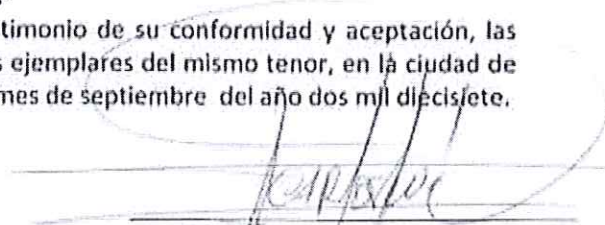 timonio de su conformidad y aceptación, las
s ejemplares del mismo tenor, en la ciudad de
mes de septiembre del año dos mil diecisiete.